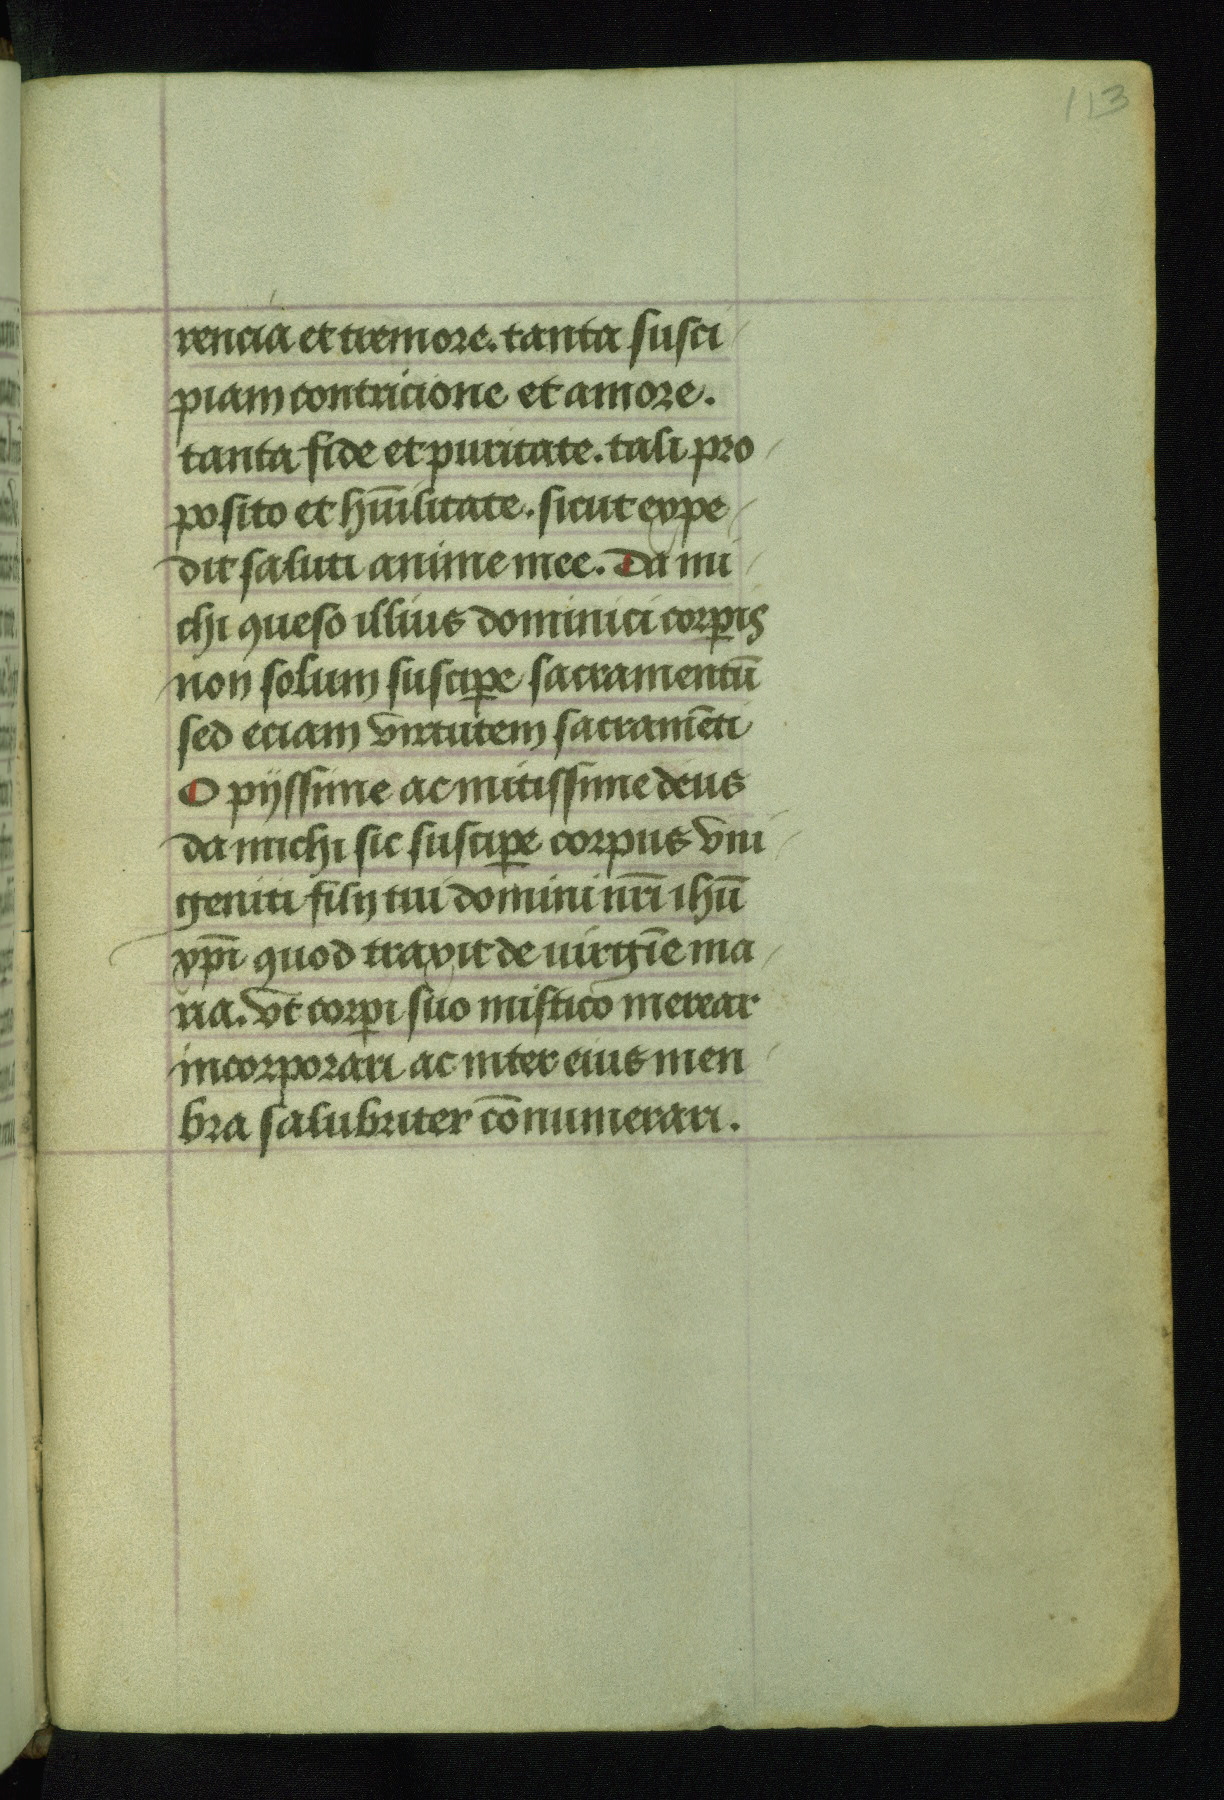 113
rencia et tremore. tanta susci
piam contricione et amore.
tanta fide et puritate. tali pro
posito et hūilitate. sicut expe
dit saluti anime mee. Da mi
chi queso illius dominici corꝑis
non solum susciꝑe sacramentū
sed eciam virtutem sacramēti
O pijssime ac mitissime deus
da michi sic susciꝑe corpus vni
geniti filij tui domini nr̄i ihū
xp̄i quod traxit de uirgīe ma
ria. vt corꝑi suo mistico merear
incorporari ac inter eius men
bra salubriter cōnumerari.